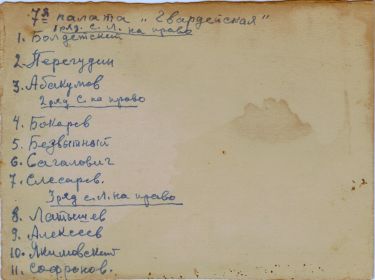 7я палата „Гвардейская"
1 ряд с. Л. на право
1. Болдетский
2. Перегудин
3. Абакумов
2 ряд с. на право
4. Бокарев
5. Безвытный
6. Сагалович
7. Слесарев.
3 ряд с. Л. на право
8. Латышев
9. Алексеев
10. Якимовский
11. Софронов.